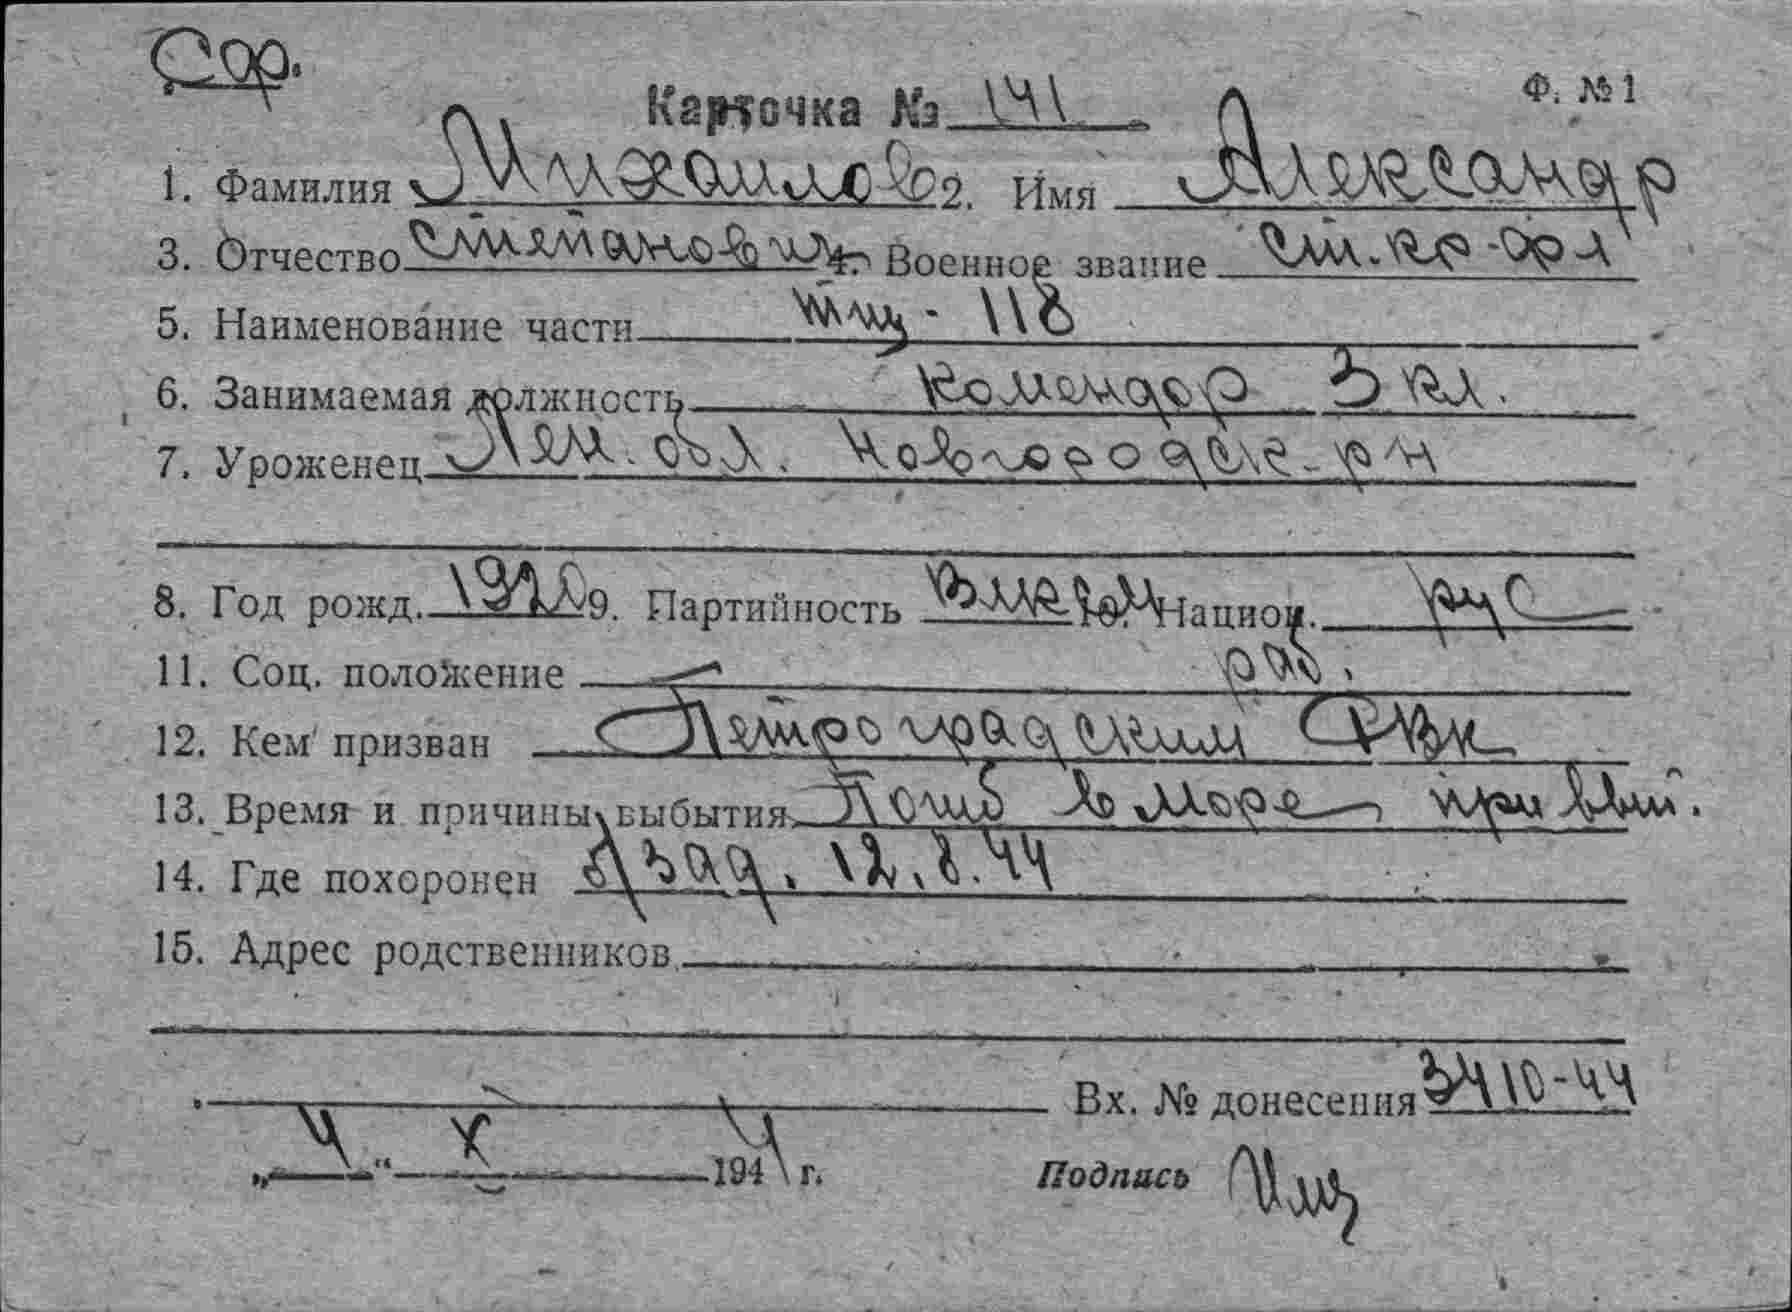 Сор.
Карточка № 141 Ф. №1
1. Фамилия Михайлов 2. Имя Александр
3. Отчество Степанович 4. Военное звание ст. кр-фл
5. Наименование части тщ - 118
6. Занимаемая должность Комендор 3 кл.
7. Уроженец Лен. обл. Новгородск. р-н
8. Год рожд. 1920 9. Партийность ВЛКСМ 10. Национ. рус
11. Соц. положение раб.
12. Кем призван Петроградским РВК
13. Время и причины выбытия Погиб в море при вып.
14. Где похоронен б/зад. 12.8.44
15. Адрес родственников
Вх. № донесения 3410-44
„ 4 “ X 1944 г. Подпись